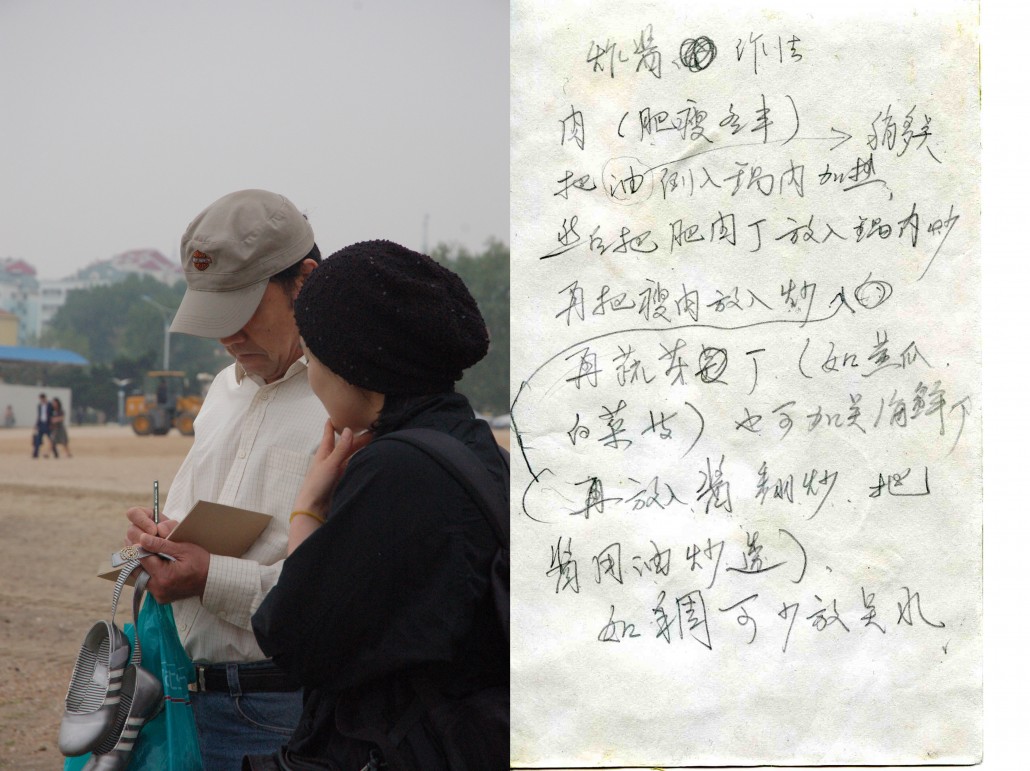 炸酱 作法
肉(肥瘦各半)→稍多关
把油倒入锅内加热,
然后把肥肉丁放入锅内炒
再把瘦肉放入炒
再蔬菜丁(如黄瓜.
白菜
也可加关海鲜丁
(再放入酱翻炒.把
酱用油炒透).
如稠可少放关水